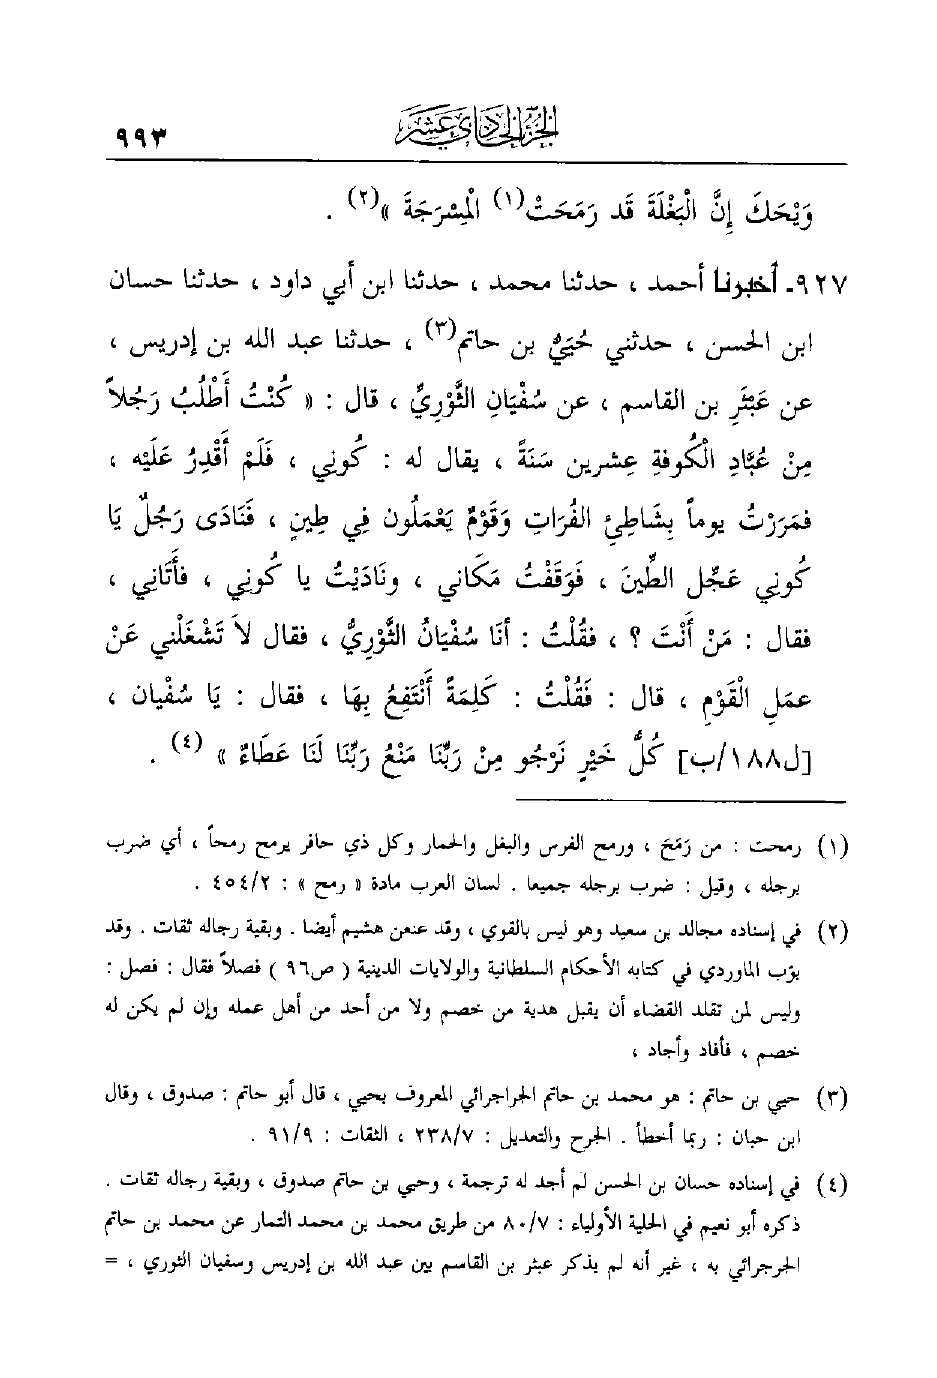 الجزء الحادي عشر ٩٩٣
وَيْحَكَ إِنَّ الْبَغْلَةَ قَد رَمَحَتْ(١) الْمِسْرَجَةَ »(٢) .
٩٢٧ـ أخبرنا أحمد ، حدثنا محمد ، حدثنا ابن أبي داود ، حدثنا حسان
ابن الحسن ، حدثني حُيَيُّ بن حاتم(٣) ، حدثنا عبد الله بن إدريس ،
عن عَبْثَرِ بن القاسم ، عن سُفْيَانِ الثَّوْرِيِّ ، قال : « كُنْتُ أَطْلُبُ رَجُلاً
مِنْ عُبَّادِ الْكُوفةِ عِشرين سَنَةً ، يقال له : كُوني ، فَلَم أَقْدِرُ عَلَيْه ،
فمَرَرْتُ يوماً بِشَاطِئِ الفُرَاتِ وَقَوْمٌ يَعْمَلُون فِي طِينٍ ، فَنَادَى رَجُلٌ يَا
كُوني عَجِّل الطِّينَ ، فَوَقَفْتُ مَكَاني ، ونَادَيْتُ يا كُوني ، فأَتَاني ،
فقال : مَنْ أَنْتَ ؟ ، فقُلْتُ : أنَا سُفْيَانُ الثَّوْرِيُّ ، فقال لاَ تَشْغَلْني عَنْ
عمَلِ الْقَوْمِ ، قال : فَقُلْتُ : كَلِمَةً أَنْتَفِعُ بِهَا ، فقال : يَا سُفْيان ،
[ل١٨٨/ب] كُلُّ خَيْرٍ نَرْجُو مِنْ رَبِّنَا مَنْعُ رَبِّنَا لَنَا عَطَاءٌ » (٤) .
(١) رمحت : من رَمَحَ ، ورمح الفرس والبغل والحمار وكل ذي حافر يرمح رمحاً ، أي ضرب
برجله ، وقيل : ضرب برجله جميعا . لسان العرب مادة « رمح » : ٤٥٤/٢ .
(٢) في إسناده مجالد بن سعيد وهو ليس بالقوي ، وقد عنعن هشيم أيضا . وبقية رجاله ثقات . وقد
بوّب الماوردي في كتابه الأحكام السلطانية والولايات الدينية ( ص٩٦ ) فصلاً فقال : فصل :
وليس لمن تقلد القضاء أن يقبل هدية من خصم ولا من أحد من أهل عمله وإن لم يكن له
خصم ، فأفاد وأجاد ،
(٣) حيي بن حاتم : هو محمد بن حاتم الجراجرائي المعروف بحيي ، قال أبو حاتم : صدوق ، وقال
ابن حبان : ربما أخطأ . الجرح والتعديل : ٢٣٨/٧ ، الثقات : ٩١/٩ .
(٤) في إسناده حسان بن الحسن لم أجد له ترجمة ، وحيي بن حاتم صدوق ، وبقية رجاله ثقات .
ذكره أبو نعيم في الحلية الأولياء : ٨٠/٧ من طريق محمد بن محمد التمار عن محمد بن حاتم
الجرجرائي به ، غير أنه لم يذكر عبثر بن القاسم بين عبد الله بن إدريس وسفيان الثوري ، =